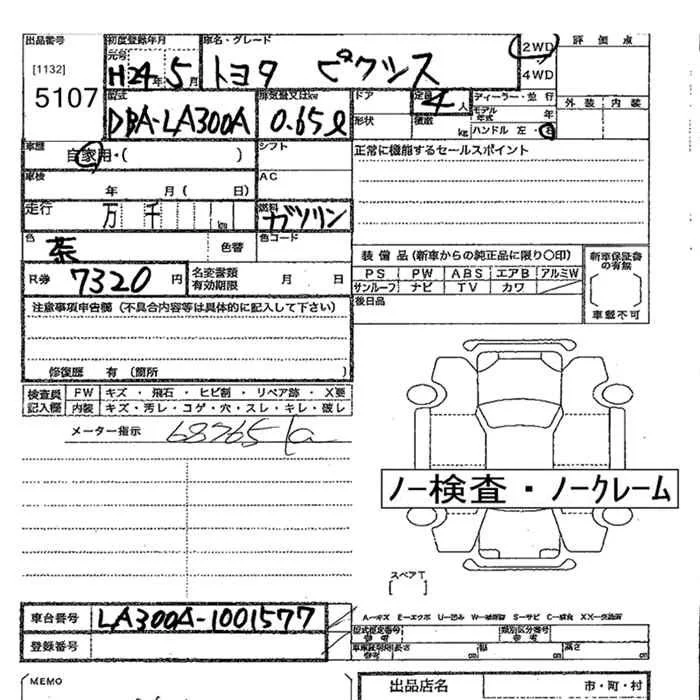 出品番号 初度登録年月 車名・グレード 2WD 評価点
元号
[1132] H24年5月 トヨタ ピクシス 4WD
5107
型式 排気量又はkw ドア 定員 4人 ディーラー・並行 外装 内装
DBA-LA300A 0.65ℓ 形状 積載 kg モデル年式 年
ハンドル 左・右
車歴 自家用・( ) シフト 正常に機能するセールスポイント
車検 年 月( 日) AC
走行 万 千 km 燃料 ガソリン
色 茶 色替 色コード
装備品(新車からの純正品に限り〇印) 新車保証書の有無
R券 7320円 名変書類有効期限 月 日 PS PW ABS エアB アルミW
サンルーフ ナビ TV カワ
注意事項申告欄(不具合内容等は具体的に記入して下さい) 後日品 車載不可
修復歴 有(箇所
検査員記入欄 FW キズ・飛石・ヒビ割・リペア跡・X要
内装 キズ・汚レ・コゲ・穴・スレ・キレ・破レ
メーター指示 68765
ノー検査・ノークレーム
スペアT
[ ]
車台番号 LA300A-1001577 A−キズ E−エクボ U−凹み S−サビ C−腐食
登録番号 型式指定番号 参考 類別区分番号 参考
車庫証明用参考 長さ cm 幅 cm 高さ cm
MEMO 出品店名 市・町・村